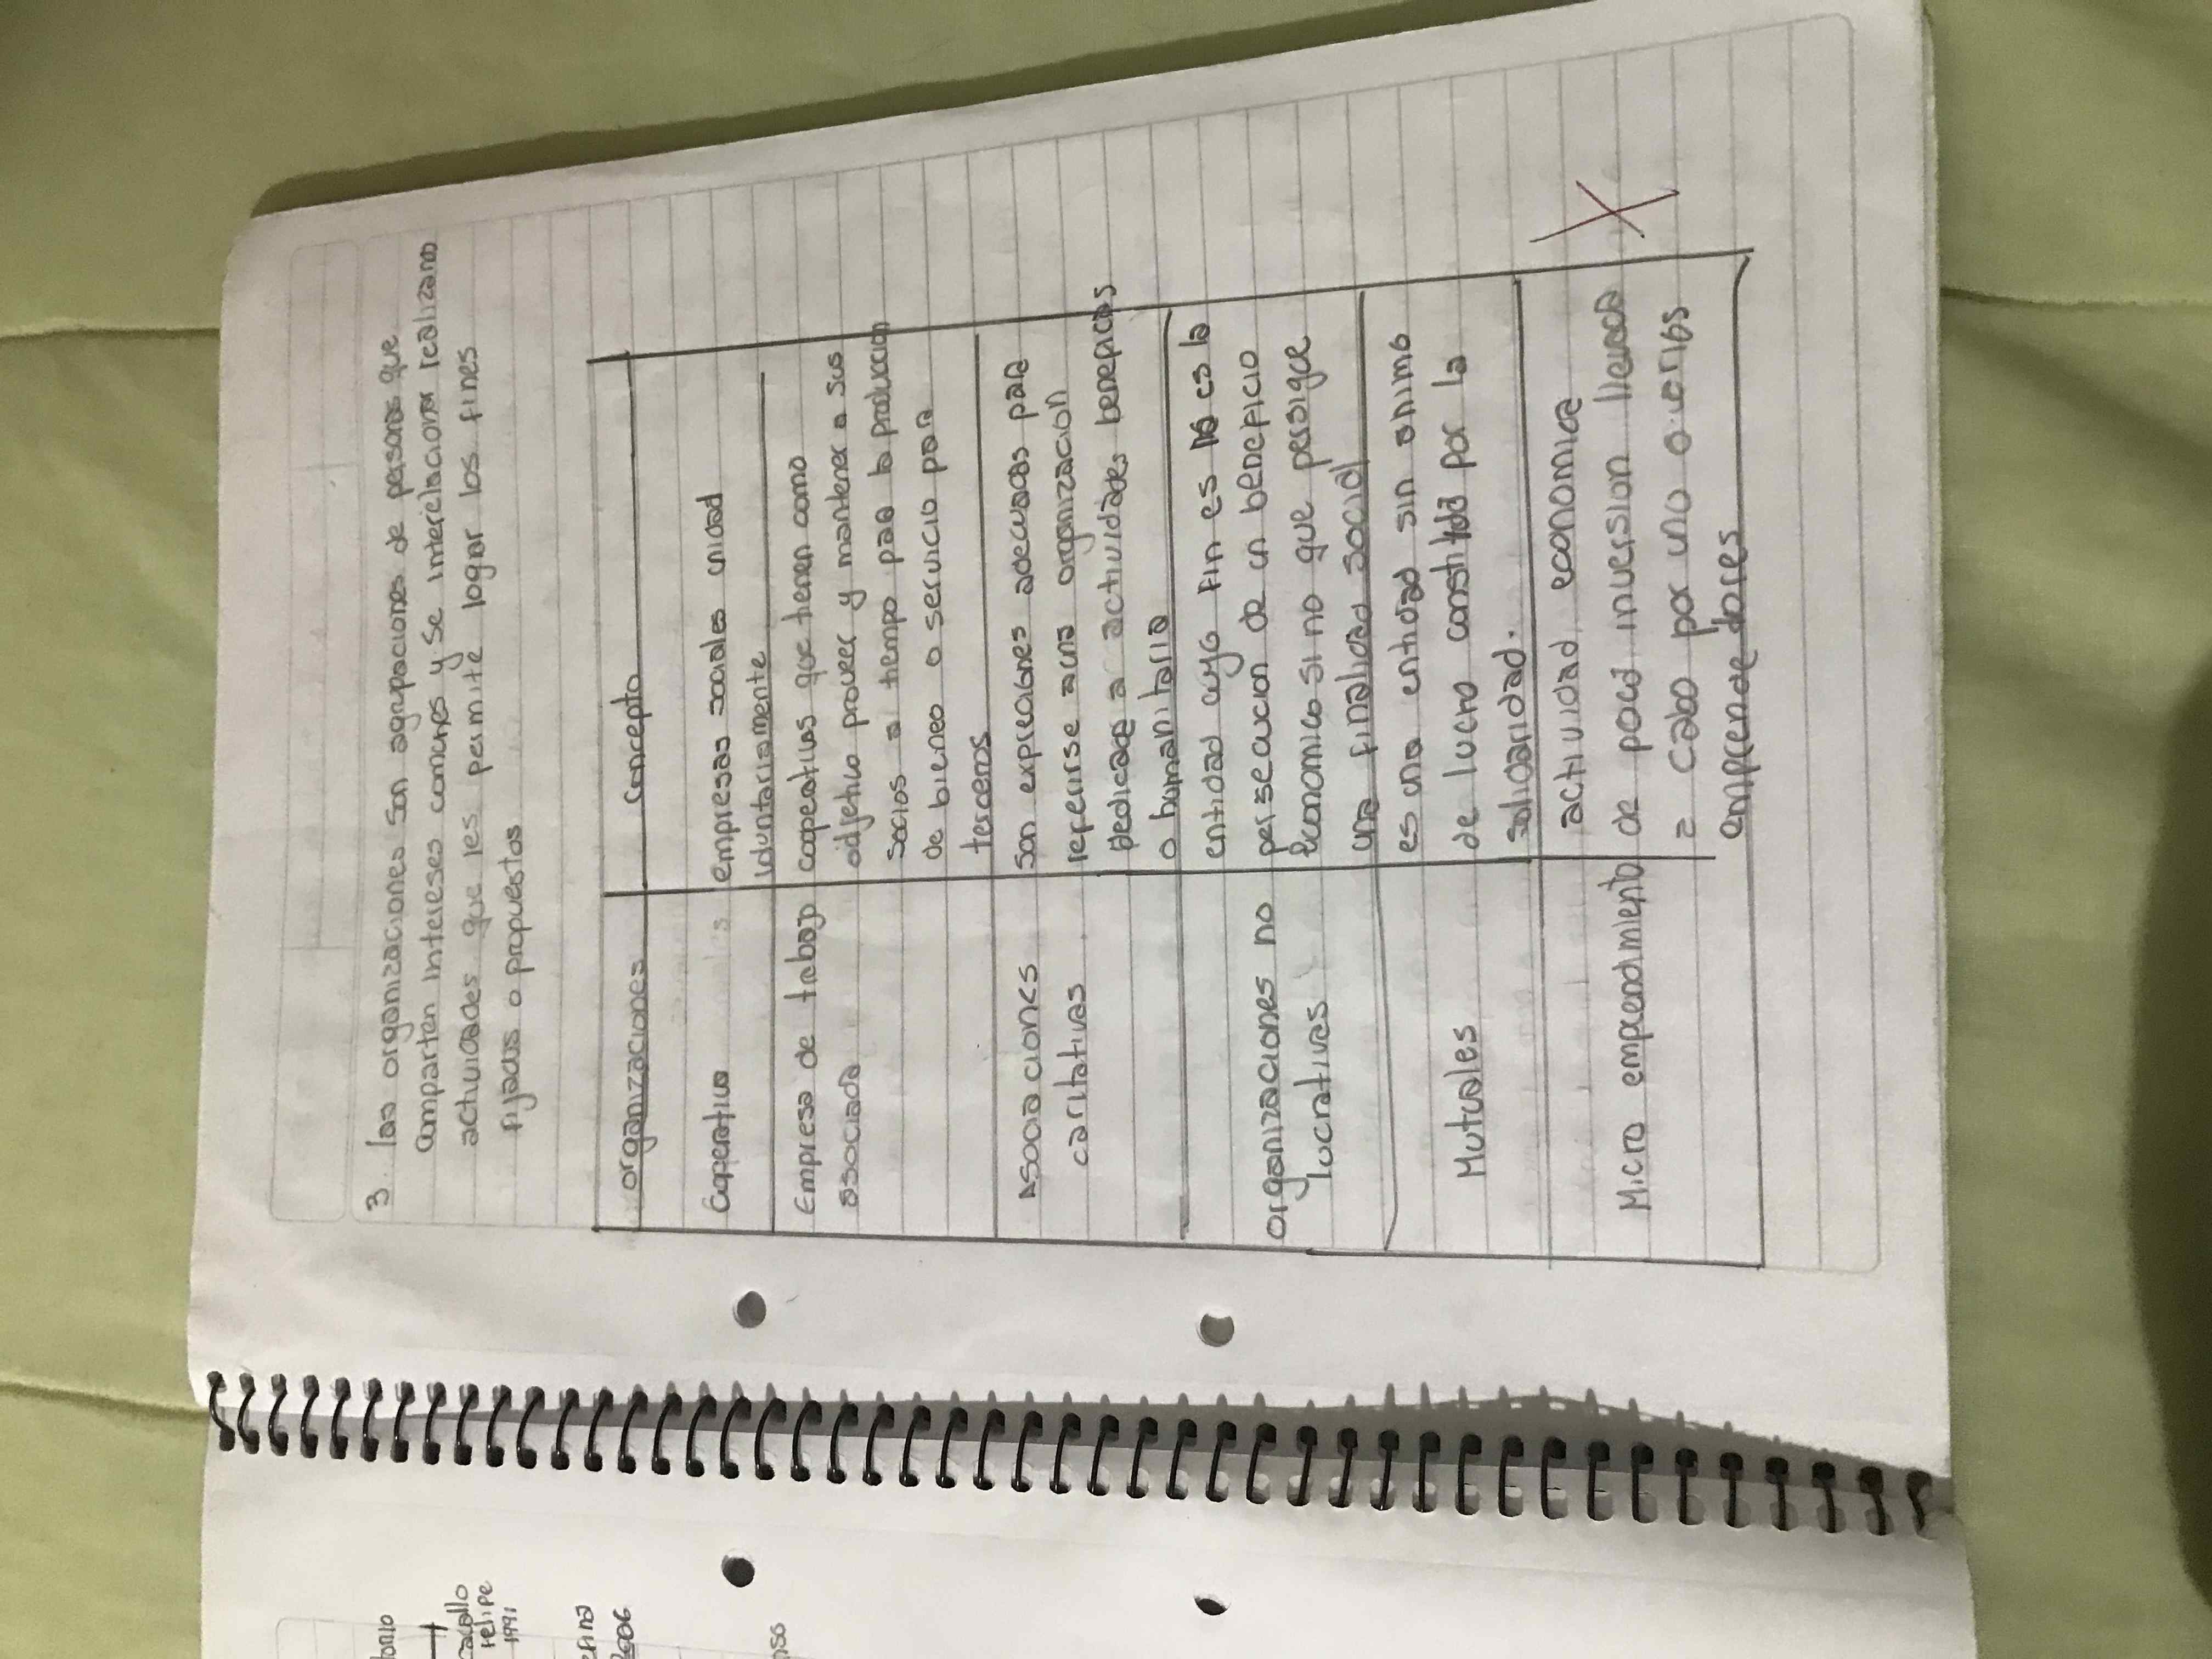 3. las organizaciones son agrupaciones de personas que
comparten intereses comunes y se interelacionar realizano
actividades que les permite logar los fines
fijados o propuestos
organizaciones
concepto
Coperativa
empresas sociales unidad
voluntariamente
Empresa de trabajo
asociada
coopeativas que tienen como
odjetivo proveer y mantener a sus
socios a tiempo para la produccion
de bienes o servicio para
terceros
Asociaciones
caritativas
son expreciones adecuadas para
referirse a una organizacion
dedicada a actividades beneficas
o humanitaria
organizaciones no
lucrativas
entidad cuyo fin es no es la
persecucion de un beneficio
economico si no que persigue
una finalidad social
Mutuales
es una entidad sin animo
de lucro constituida por la
solidaridad.
Micro emprendimiento
actividad economica
de poca inversion llevada
a cabo por uno o
emprendedores
caballo
felipe
1991
2006